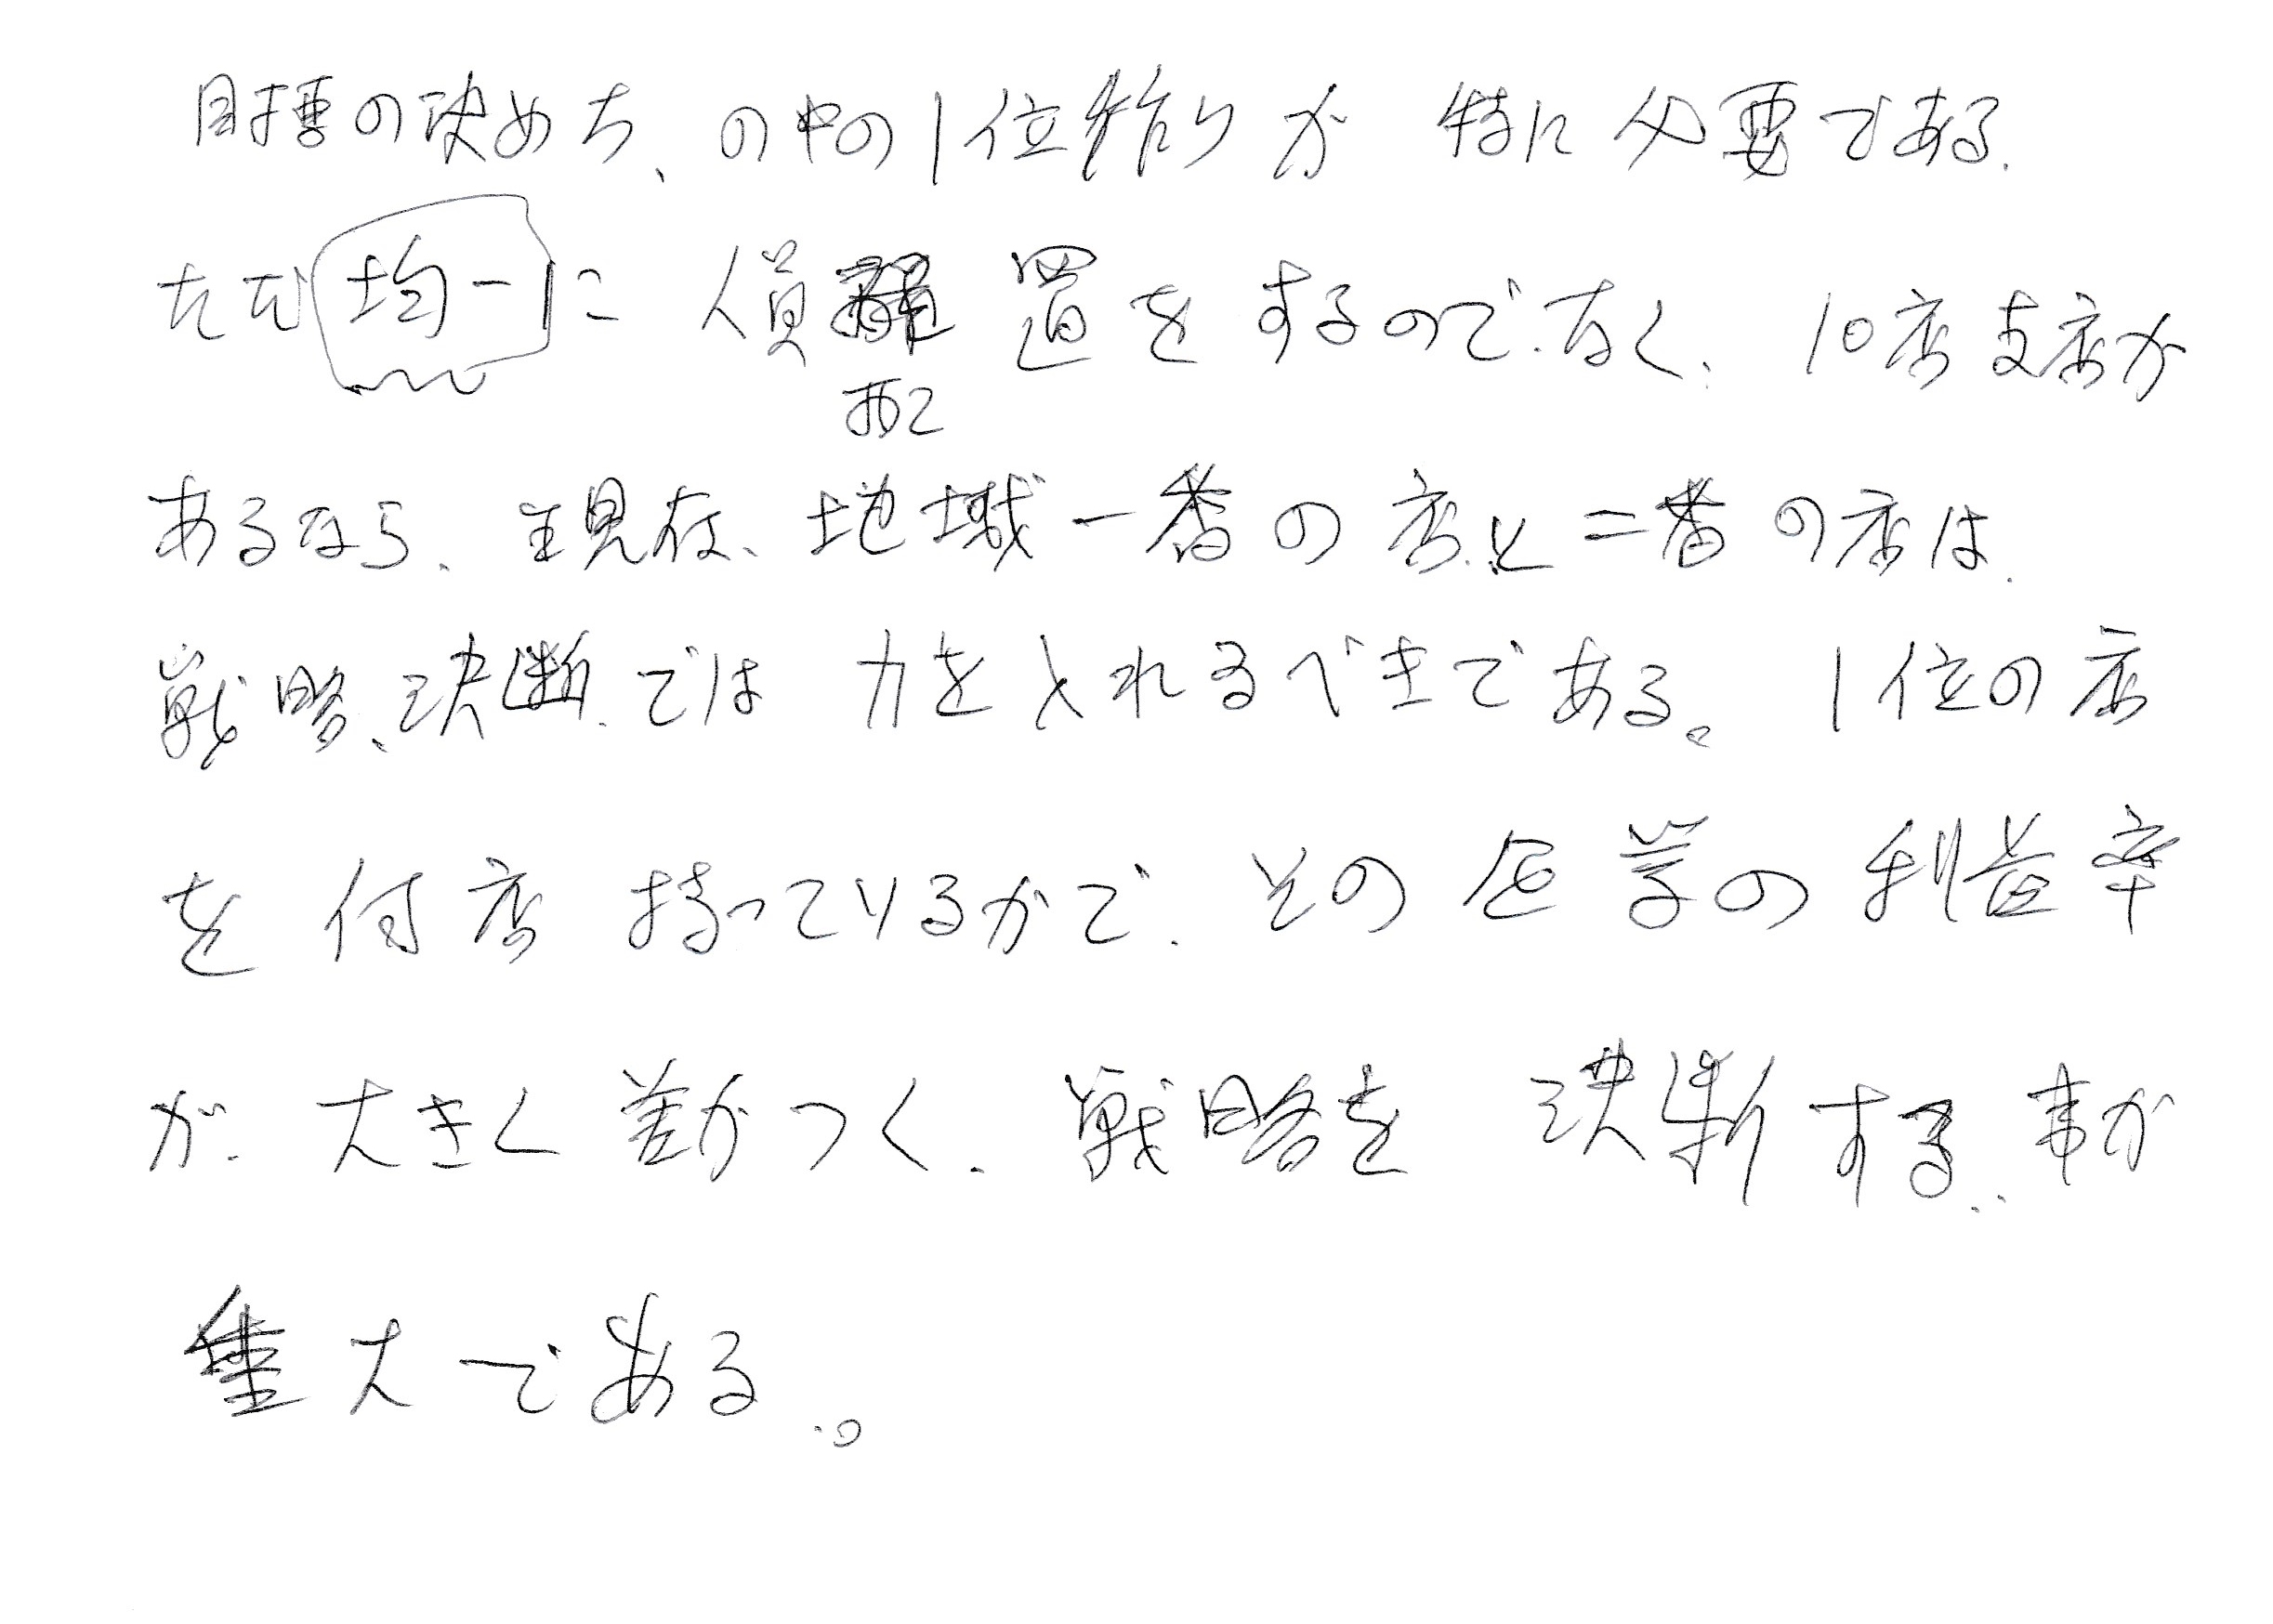 目標の決め方、の中の1位作りが特に必要である.
ただ均一に人員配置をするのでなく、10店支店が
あるなら、現在、地域一番の店と二番の店は、
戦略、決断では力を入れるべきである。1位の店
を何店持っているかで、その企業の利益率
が大きく差がつく、戦略を決断する、事が
重大である。